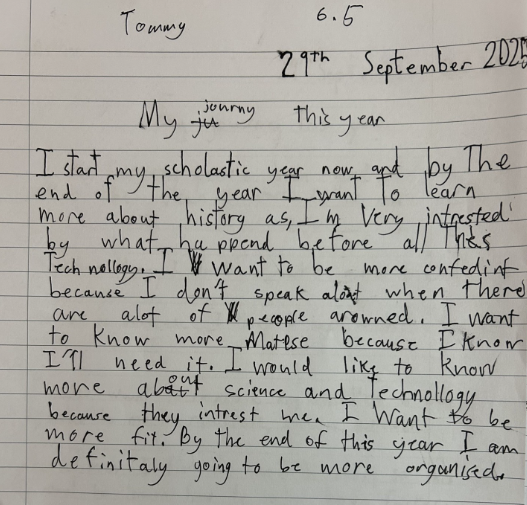 Tommy 6.5
29th September 2025
My journy this year
I start my scholastic year now and by The
end of the year I want to learn
more about history as, I'm Very intrested
by what happend before all This
Technollogy. I want to be more confedint
because I don't speak alot when there
are alot of people arowned. I want
to know more Maltese because I know
I'll need it. I would like to know
more about science and Technollogy
because they intrest me. I Want to be
more fit. By the end of this year I am
definitaly going to be more organised.